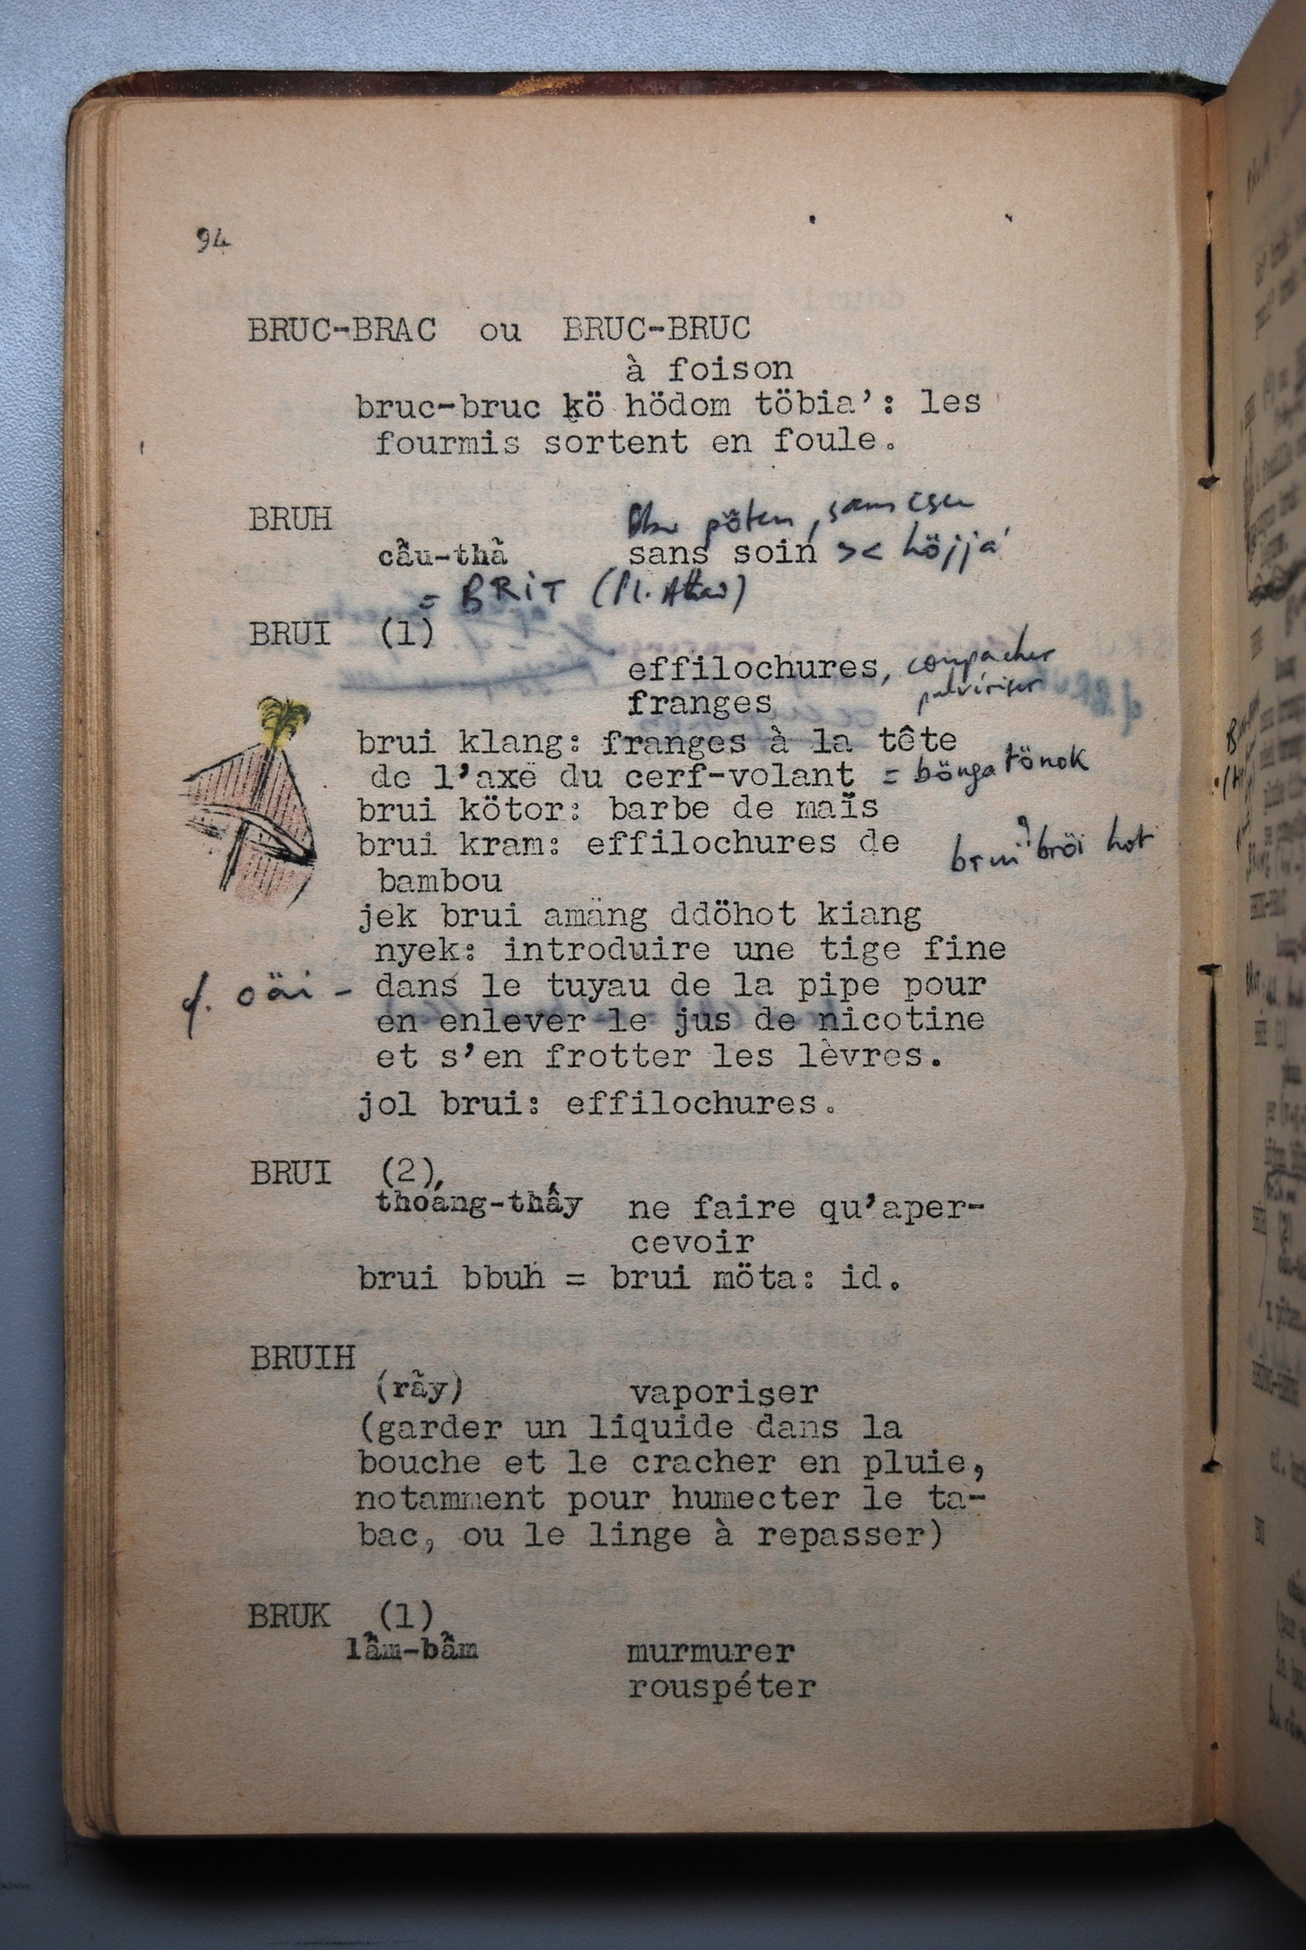 94
BRUC-BRAC ou BRUC-BRUC
à foison
bruc-bruc kö hödom töbia': les
fourmis sortent en foule.
BRUH
pöten, sans
cẩu-thả sans soin >< höjja'
= BRIT (Pl.
BRUI (1)
effilochures, compacher
franges pulvériser
brui klang: franges à la tête
de l'axe du cerf-volant = bönga tönok
brui kötor: barbe de maïs
brui kram: effilochures de
brui bröi hot
bambou
jek brui amäng ddöhot kiang
nyek: introduire une tige fine
cf. öäi - dans le tuyau de la pipe pour
en enlever le jus de nicotine
et s'en frotter les lèvres.
jol brui: effilochures.
BRUI (2)
thoáng-thấy ne faire qu'aper-
cevoir
brui bbuh = brui möta: id.
BRUIH
(rãy) vaporiser
(garder un liquide dans la
bouche et le cracher en pluie,
notamment pour humecter le ta-
bac, ou le linge à repasser)
BRUK (1)
lẩm-bẩm murmurer
rouspéter